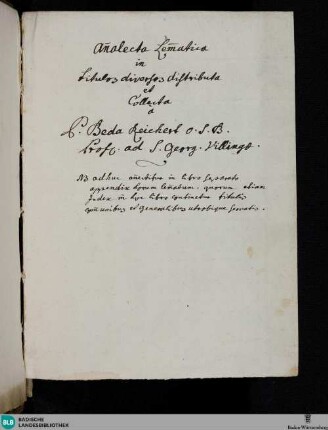 Analecta Lem̃atica
in
titulos diversos distributa
et
Collecta
a
P. Beda Reichert O. S. B.
Prof. ad S. Georg. Villingæ.
NB adhuc in libro separato
appendix horum lematum, quorum etiam
Index in hoc libro continetur titulis
et generalibus utrobique servatis.
BLB BADISCHE
LANDESBIBLIOTHEK
Baden-Württemberg